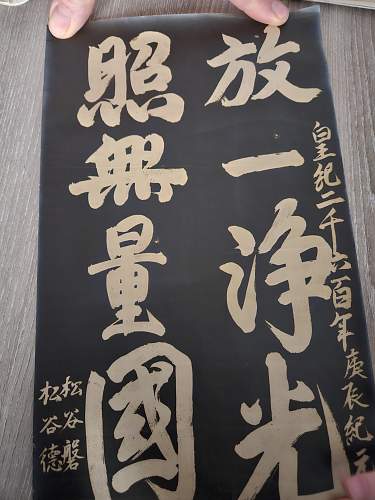 皇紀二千六百年庚辰紀元
放一浄光
照無量國
松谷磐
松谷德